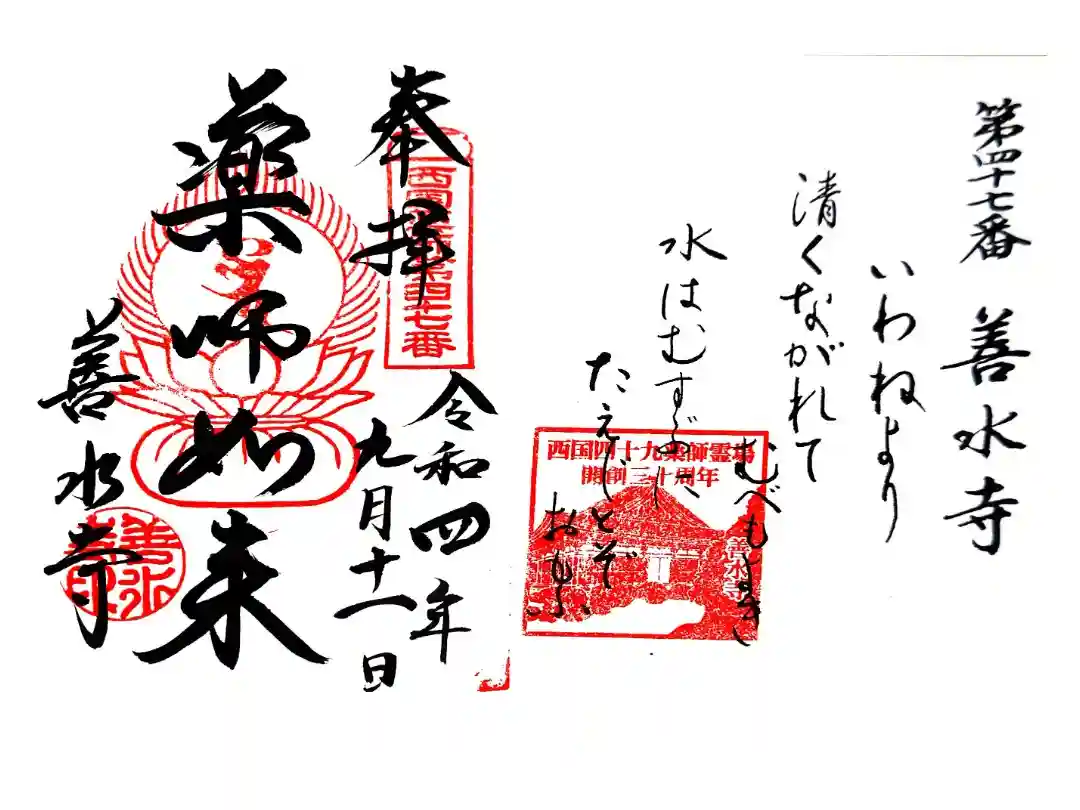 第四十七番 善水寺
いわねより
清くながれて
むべも
水は
たえじとぞ
おもふ
西国四十九薬師霊場
開創三十周年
善水寺
奉拝
四十七番
令和四年
九月十一日
薬師如来
善水寺